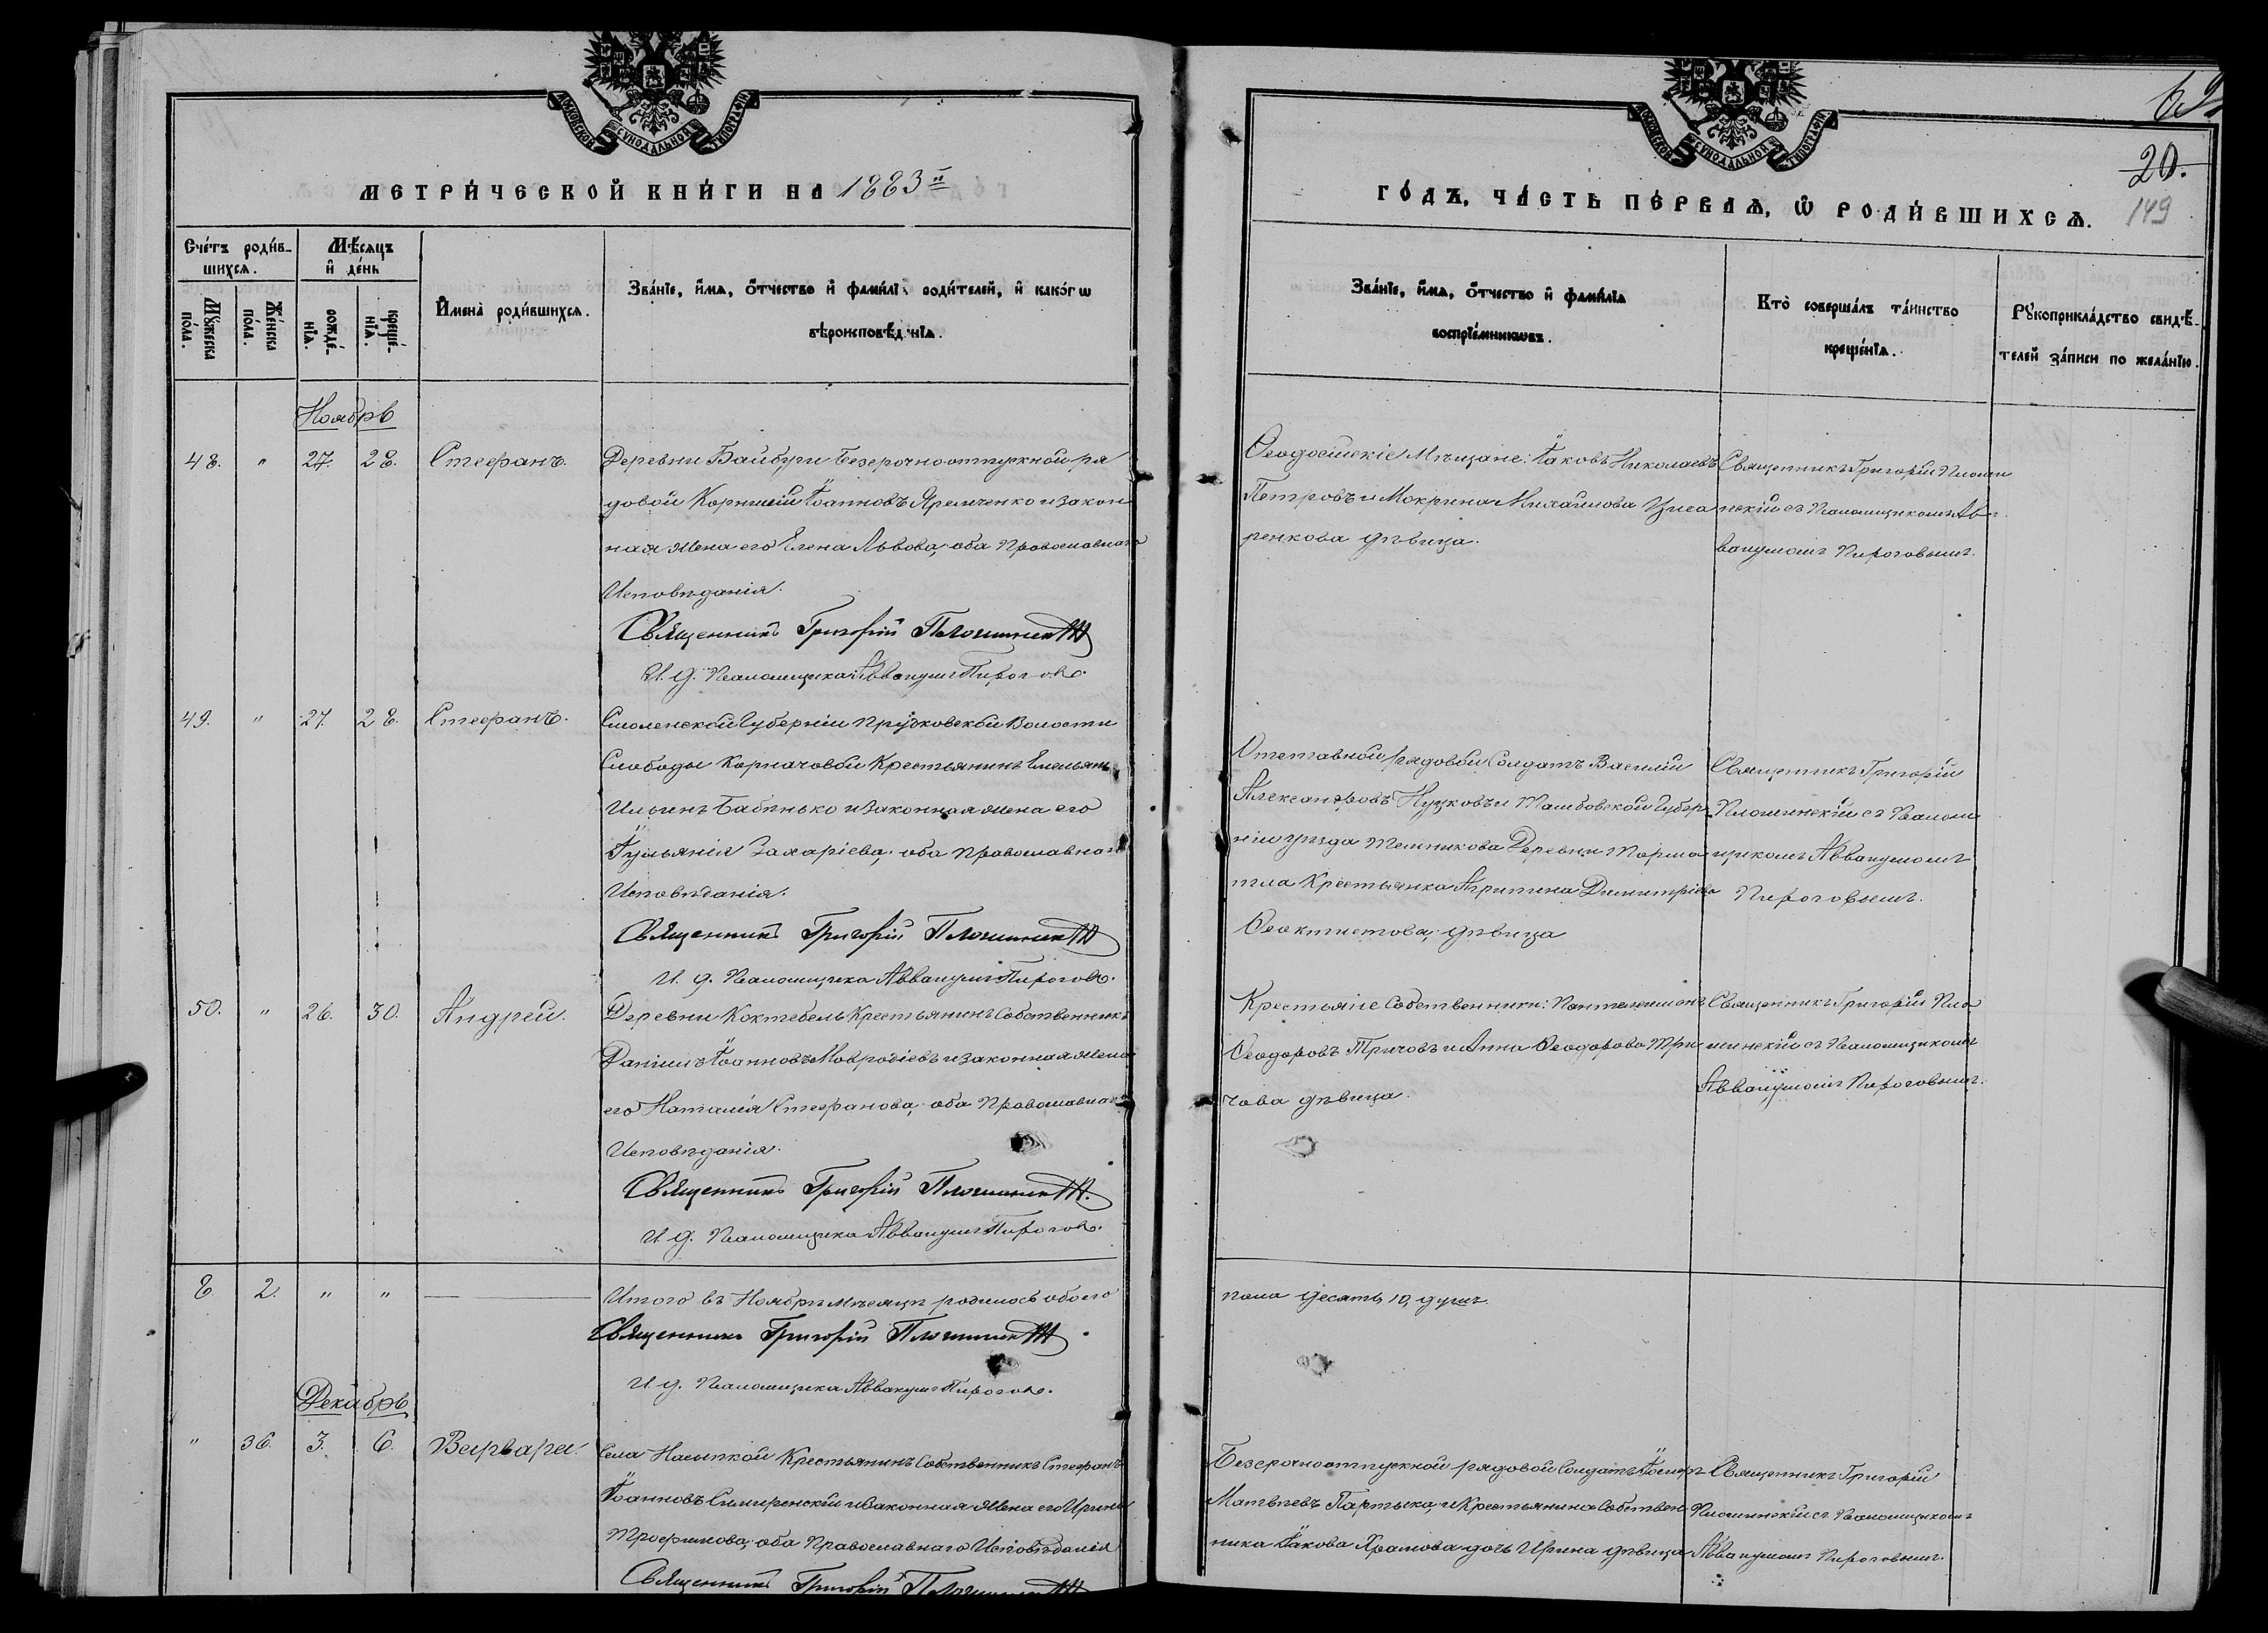 МОСКОВСКОЙ СѴНОДАЛЬНОЙ ТИПОГРАФІИ
МЕТРИ́ЧЕСКОЙ КНИ́ГИ НА 1883й
Сче́тъ роди́вшихся.
Мѣ́сяцъ и де́нь
Мꙋ́жеска по́ла.
Же́нска по́ла.
рожде́нїѧ.
креще́нїѧ.
И҆мена̀ роди́вшихсѧ.
Зва́нїе, и҆́мѧ, о҆́тчество и҆ фами́лї роди́телей, и҆ како́гѡ
вѣроисповѣд нїѧ.
Ноябрь
48. " 27. 28. Стефанъ.
Деревни Байбуги Безсрочноотпускной ря
довой Корнилій Іоанновъ Яремченко и закон
ная жена его Елена Львова, оба Православнаго
Исповѣданія.
Священникъ Григорій Плошинскій
И. д. Псаломщика Аввакумъ Пироговъ.
49. " 27. 28. Стефанъ.
Смоленской Губерніи Волости
Слободы Корначовой Крестьянинъ Емельянъ
Ильинъ Бабинько и законная жена его
Іуліанія Захаріева, оба Православнаго
Исповѣданія.
Священникъ Григорій Плошинскій
И. д. Псаломщика Аввакумъ Пироговъ.
50. " 26. 30. Андрей.
Деревни Коктебель Крестьянинъ Собственникъ
Даніилъ Іоанновъ Мавродіевъ и законная жена
его Наталія Стефанова, оба Православнаго
Исповѣданія.
Священникъ Григорій Плошинскій
И. д. Псаломщика Аввакумъ Пироговъ.
8 2. " "
Итого въ Ноябрѣ мѣсяцѣ родилось обоего
Священникъ Григорій Плошинскій
И. д. Псаломщика Аввакумъ Пироговъ.
Декабрь
" 36. 3. 6. Варвара.
Села Насыпкой Крестьянинъ Собственникъ Стефанъ
Іоанновъ Симиренскій и законная жена его Ирина
Трофимова, оба Православнаго Исповѣданія
Священникъ Григорій Плошинскій
62
20.
149
МОСКОВСКОЙ СѴНОДАЛЬНОЙ ТИПОГРАФІИ
ГО́ДЪ, ЧА́СТЬ ПЕ́РВАѦ, Ѡ҆ РОДИ́ВШИХСѦ.
Зва́нїе, и҆́мѧ, о҆́тчество и҆ фами́лїѧ
воспрїе́мникѡвъ.
Кто̀ соверша́лъ та́инство
креще́нїѧ.
Рꙋкоприкла́дство свидѣ́-
телей за́писи по жела́нїю.
Ѳеодосійскіе Мѣщане: Іаковъ Николаевъ
Петровъ и Мокрина Михайлова
ренкова дѣвица.
Священникъ Григорій Плоши
нскій съ Псаломщикомъ Ав-
вакумомъ Пироговымъ.
Отставной рядовой Солдатъ Василій
Александровъ Нуцковъ и Тамбовской Губер
ніи уѣзда Темникова Деревни
Крестьянка Агрипина Димитріева
Ѳеоктистова, дѣвица
Священникъ Григорій
Плошинскій съ Псалом
щикомъ Аввакумомъ
Пироговымъ.
Крестьяне Собственники: Пантелеимонъ
Ѳеодоровъ Тричовъ и Анна Ѳеодорова Три
чова дѣвица.
Священникъ Григорій Пло
шинскій съ Псаломщикомъ
Аввакумомъ Пироговымъ.
пола десять, 10, душъ.
Безсрочноотпускной рядовой Солдатъ Іосифъ
Матвѣевъ Партыка, и Крестьянина Собствен
ника Іакова Храмова дочь Ирина дѣвица
Священникъ Григорій
Плошинскій съ Псаломщикомъ
Аввакумомъ Пироговымъ.